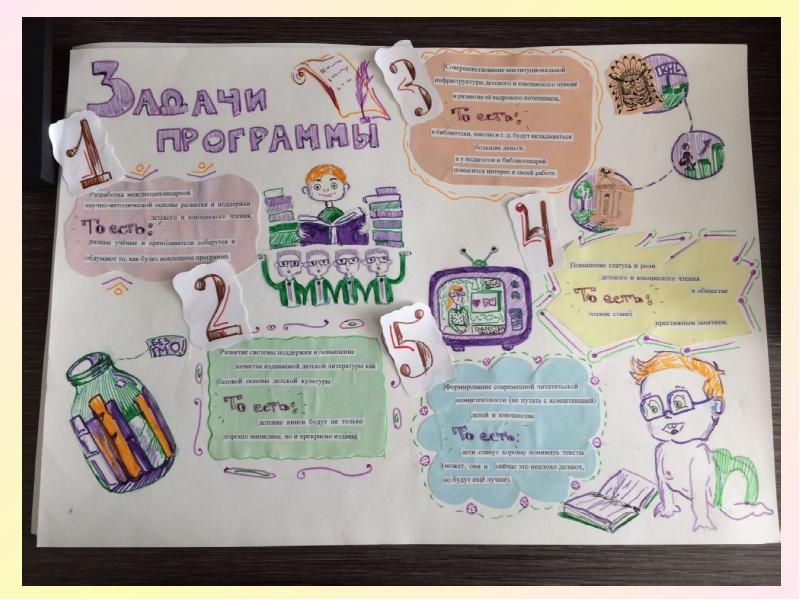 ЗАДАЧИ
ПРОГРАММЫ
1
Разработка междисциплинарной
научно-методической основы развития и поддержки
детского и юношеского чтения.
То есть:
разные учёные и преподаватели соберутся и
обдумают то, как будет воплощена программа.
2
БЕЗ
ГМО!
Развитие системы поддержки и повышение
качества издаваемой детской литературы как
базовой основы детской культуры
То есть:
детские книги будут не только
хорошо написаны, но и прекрасно изданы.
3
Совершенствование институциональной
инфраструктуры детского и юношеского чтения
и развитие её кадрового потенциала.
То есть:
в библиотеки, школы и т. д. будут вкладываться
большие деньги,
а у педагогов и библиотекарей
повысится интерес к своей работе.
4
Повышение статуса и роли
детского и юношеского чтения
в обществе
То есть:
чтение станет
престижным занятием.
5
Формирование современной читательской
компетентности (не путать с компетенцией)
детей и юношества
То есть:
дети станут хорошо понимать тексты
(может, они и сейчас это неплохо делают,
но будут ещё лучше).